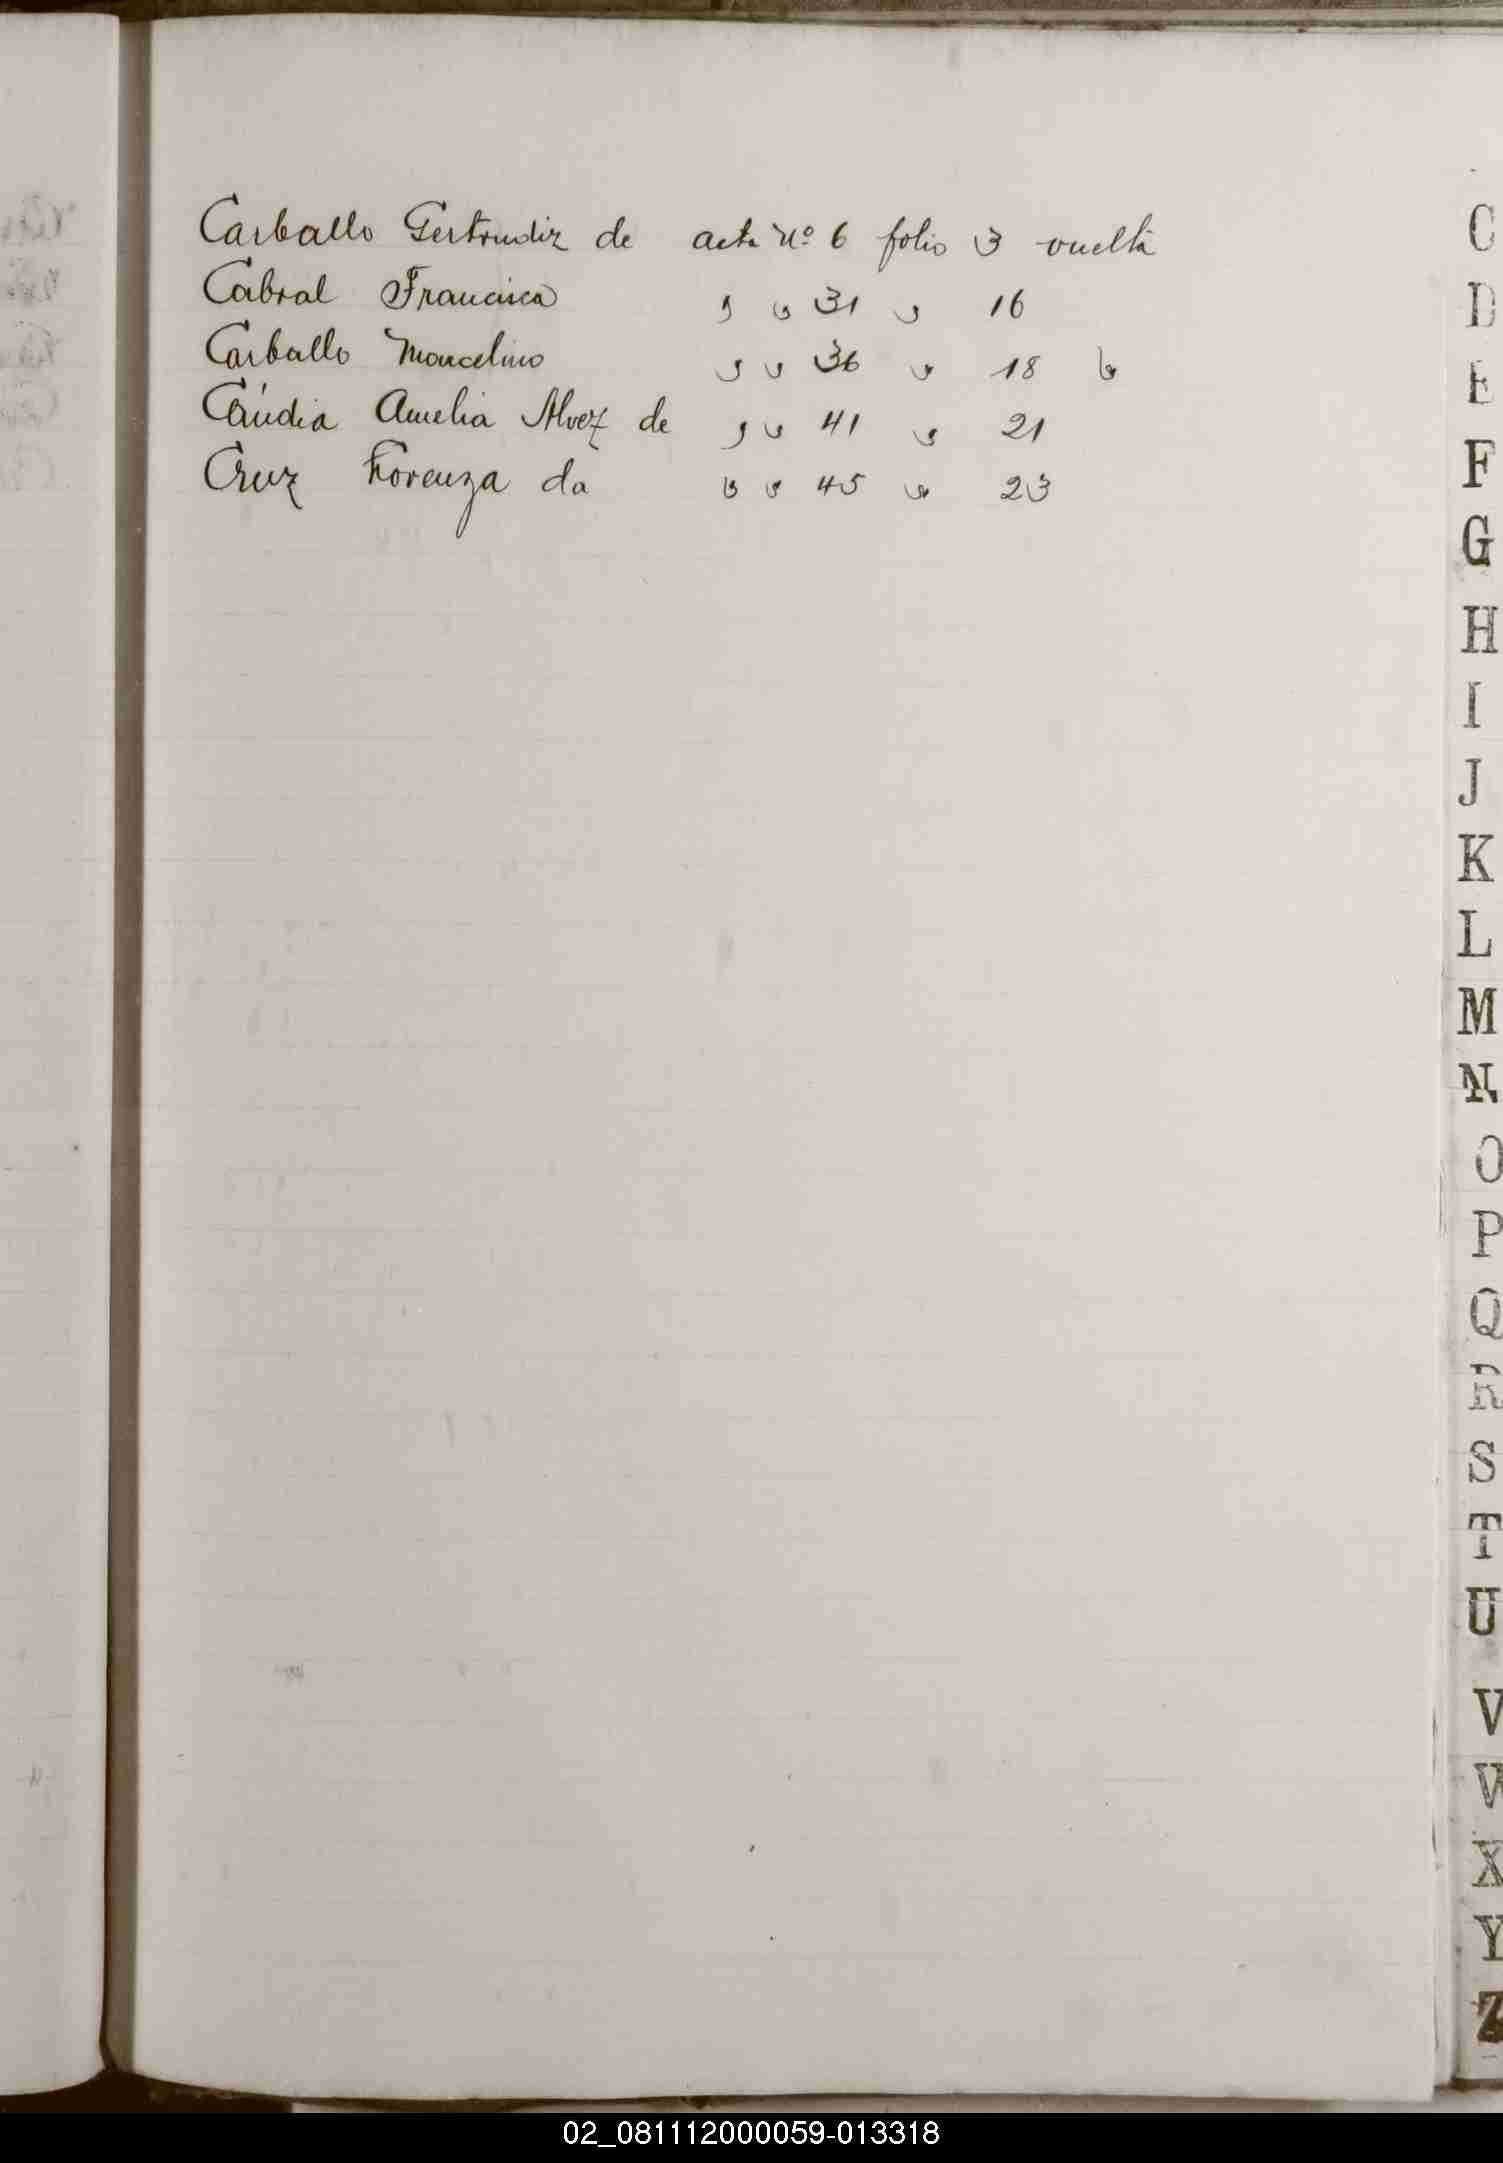 Carballo Gertrudiz de acta Nº 6 folio 3 vuelta
Cabral Francisca " " 31 " 16
Carballo Marcelino " " 36 " 18 "
Cándia Amelia Alvez de " " 41 " 21
Cruz Lorenza da " " 45 " 23
C
D
E
F
G
H
I
J
K
L
M
N
O
P
Q
R
S
T
U
V
W
X
Y
Z
02_081112000059-013318